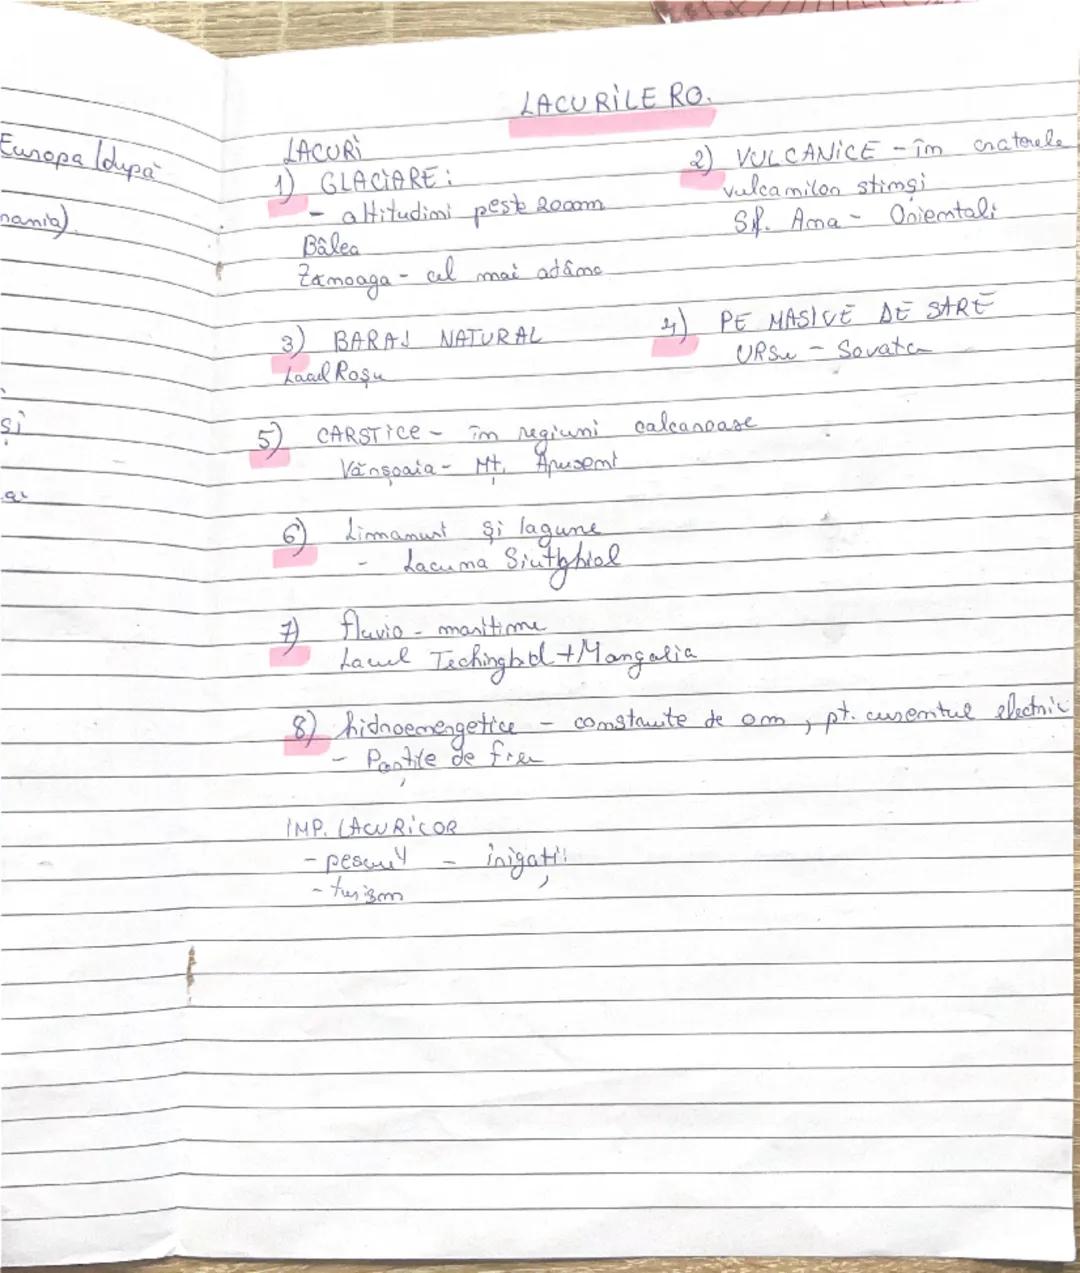 Europa (după
nania).
și
LACURILE RO.
LACURI
1) GLACIARE:
- altitudini peste 2000m
Bâlea
Zănoaga - cel mai adânc
2) VULCANICE - în craterele
vulcanilor stinși
Sf. Ana - Orientali
3) BARAJ NATURAL
Lacul Roșu
4) PE MASIVE DE SARE
URSu - Sovata
5) CARSTICE - în regiuni calcaroase
Vărșoaia - Mț. Apuseni
6) Limanuri și lagune
- Lacuna Siutghiol
7) fluvio - maritime
Lacul Techirghiol + Mangalia
8) hidroenergetice - construite de om, pt. curentul electric
- Porțile de fier
IMP. LACURILOR
- pescuit - irigații
- turism